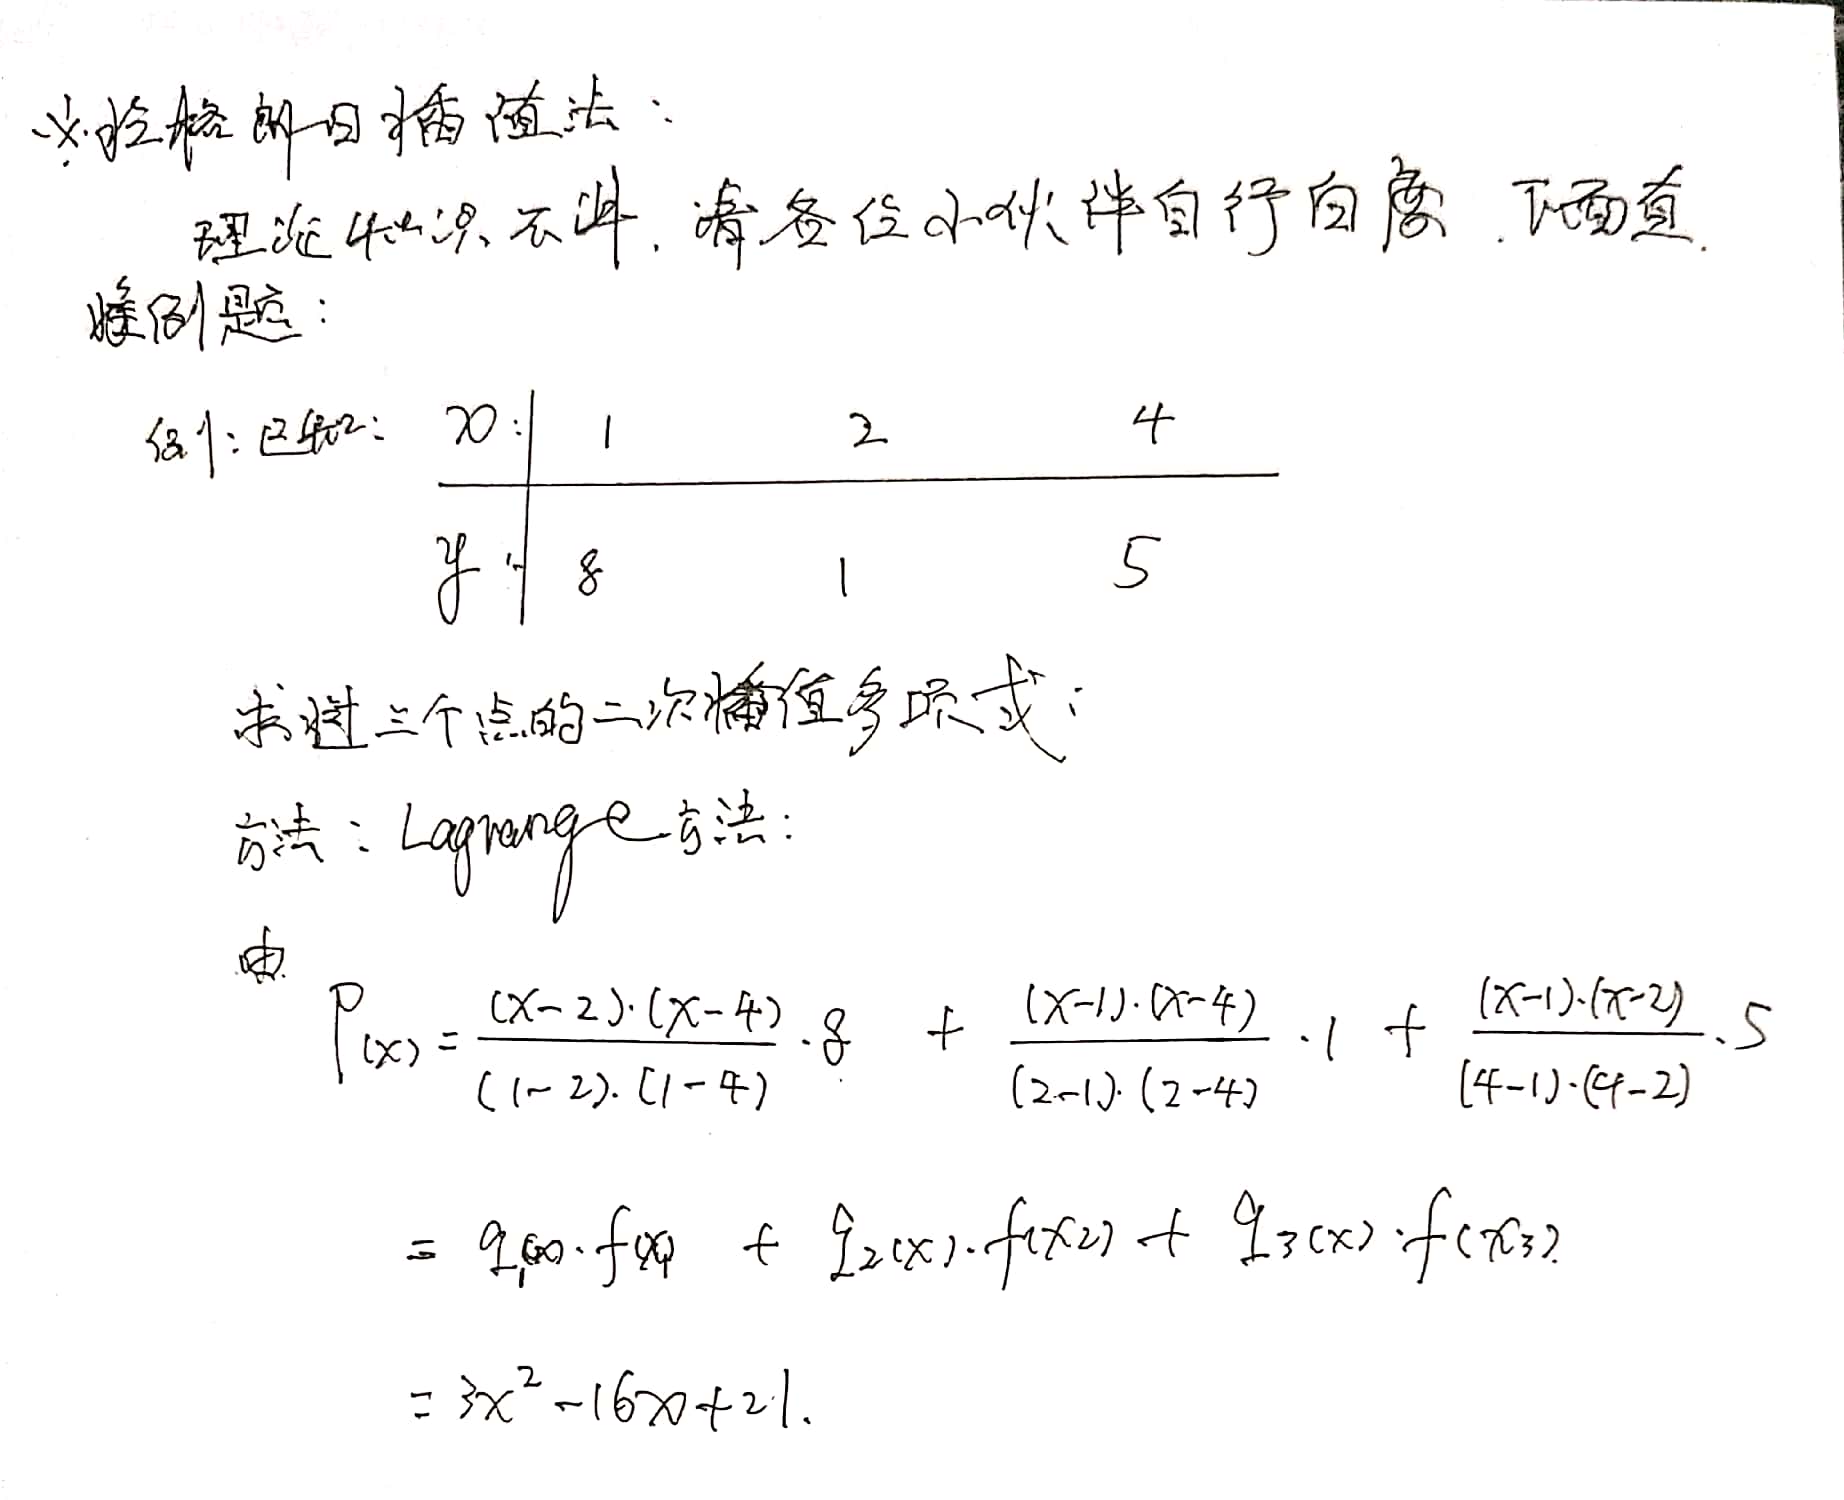 ※拉格朗日插值法:
理论知识不讲,请各位小伙伴自行百度.下面直.
接例题:
例1:已知: x: 1 2 4
y: 8 1 5
求过三个点的二次插值多项式:
方法: Lagrange方法:
由
P(x) = (x-2)·(x-4) / (1-2)·(1-4) ·8 + (x-1)·(x-4) / (2-1)·(2-4) ·1 + (x-1)·(x-2) / (4-1)·(4-2) ·5
= q₁(x)·f(x₁) + q₂(x)·f(x₂) + q₃(x)·f(x₃)
= 3x²-16x+21.